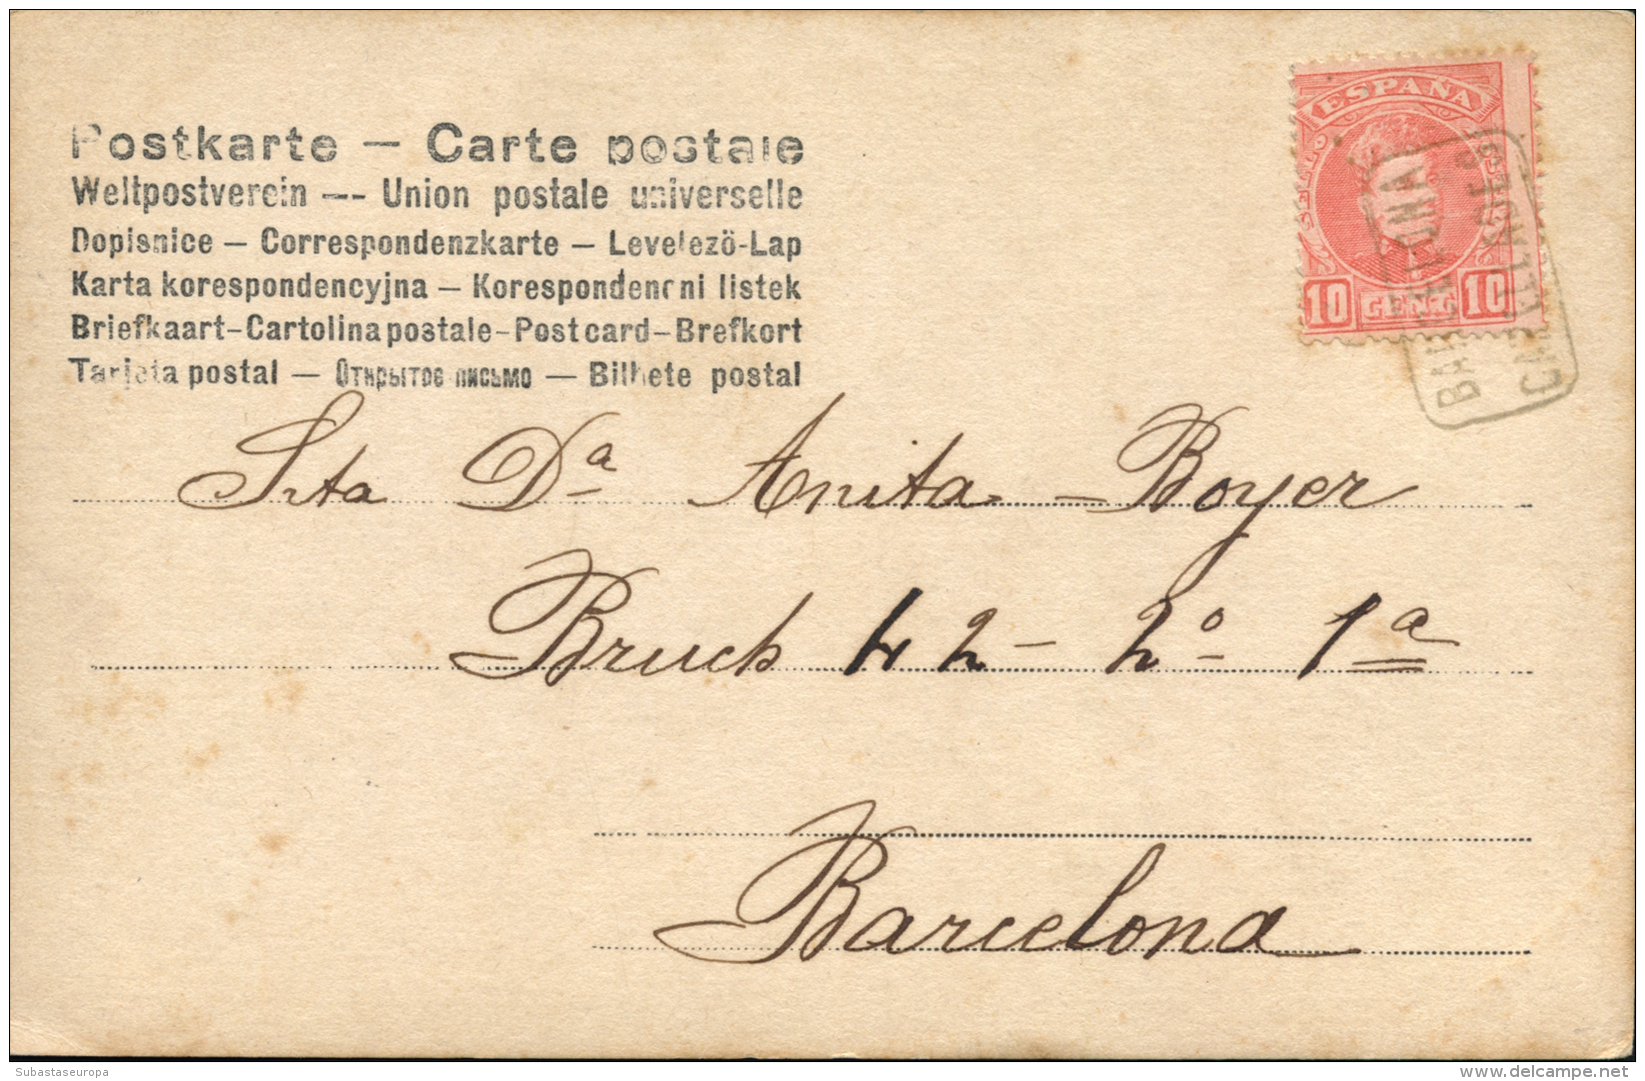 Postkarte — Carte postale
Weltpostverein –– Union postale universelle
Dopisnice — Correspondenzkarte — Levelező-Lap
Karta korespondencyjna — Korespondencni listek
Briefkaart–Cartolina postale–Post card–Brefkort
Tarjeta postal — Открытое письмо — Bilhete postal
ESPAÑA
10 CENT. 10
BARCELONA
Srta Dª Anita Boyer
Bruch 42 – 2º 1ª
Barcelona
Subastaseuropa
www.delcampe.net